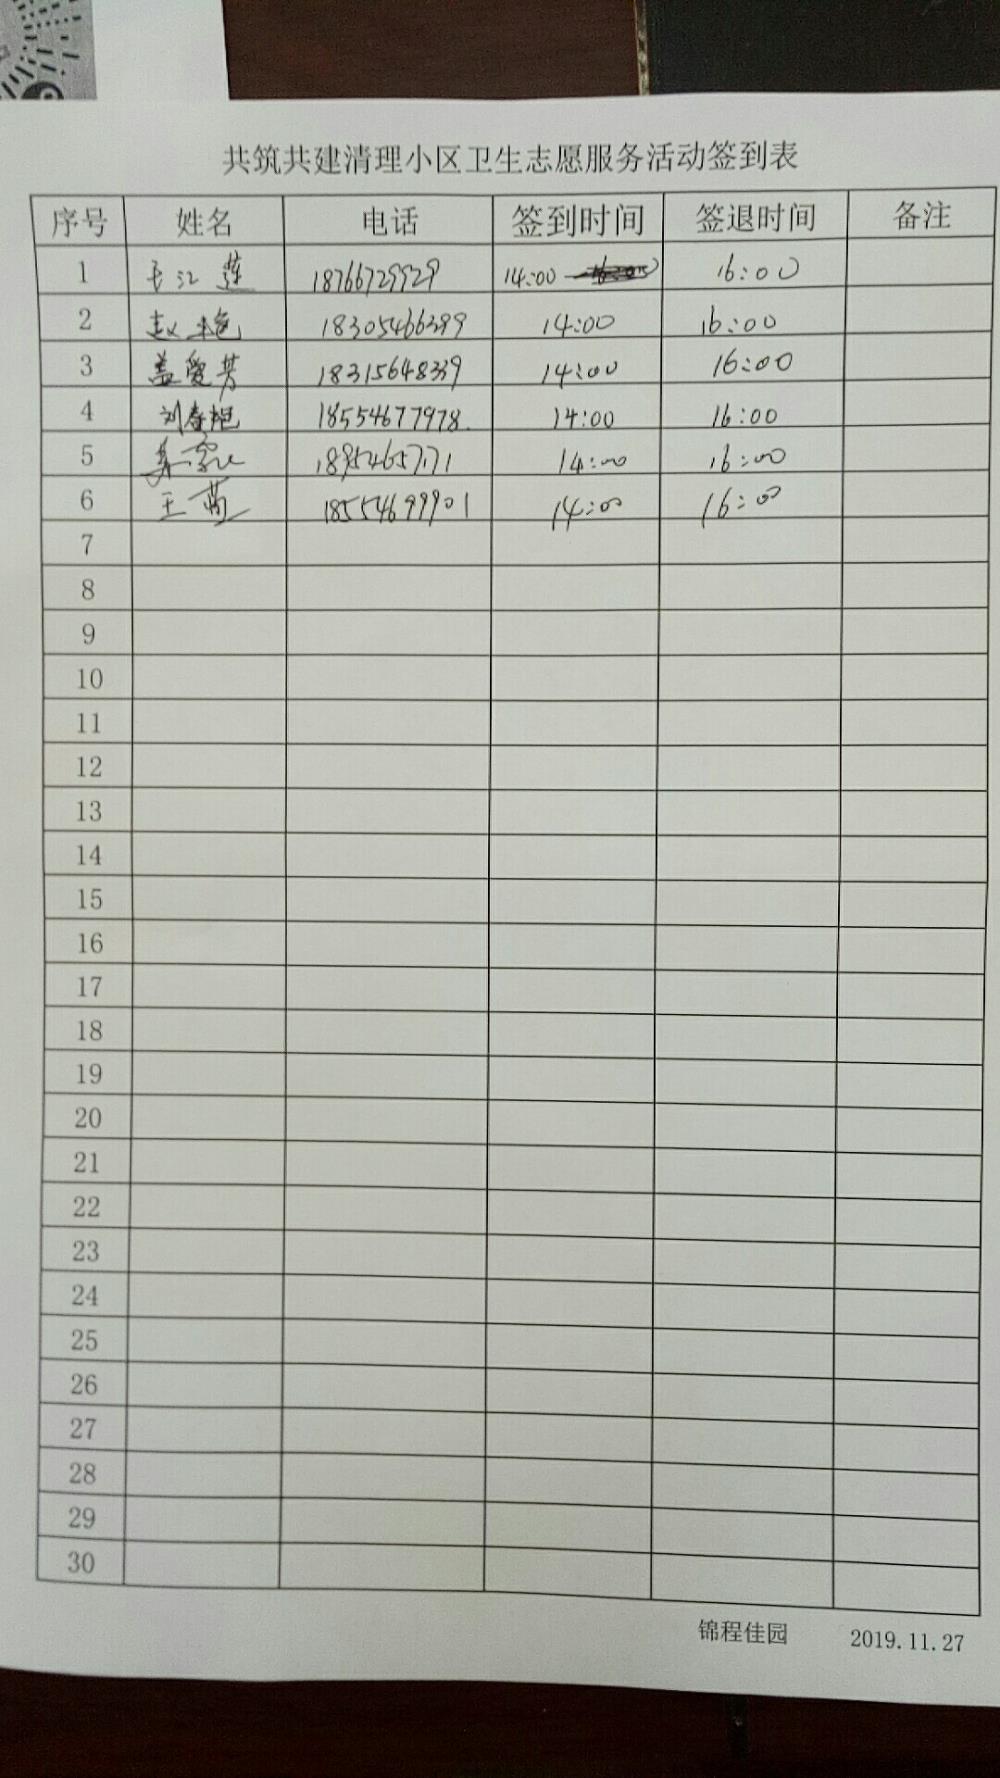 共筑共建清理小区卫生志愿服务活动签到表
序号 姓名 电话 签到时间 签退时间 备注
1 江莲 18766729929 14:00 16:00
2 赵 18305466399 14:00 16:00
3 盖爱芳 18315648339 14:00 16:00
4 刘春艳 18554677978 14:00 16:00
5 14:00 16:00
6 王 18554699901 14:00 16:00
7
8
9
10
11
12
13
14
15
16
17
18
19
20
21
22
23
24
25
26
27
28
29
30
锦程佳园 2019.11.27